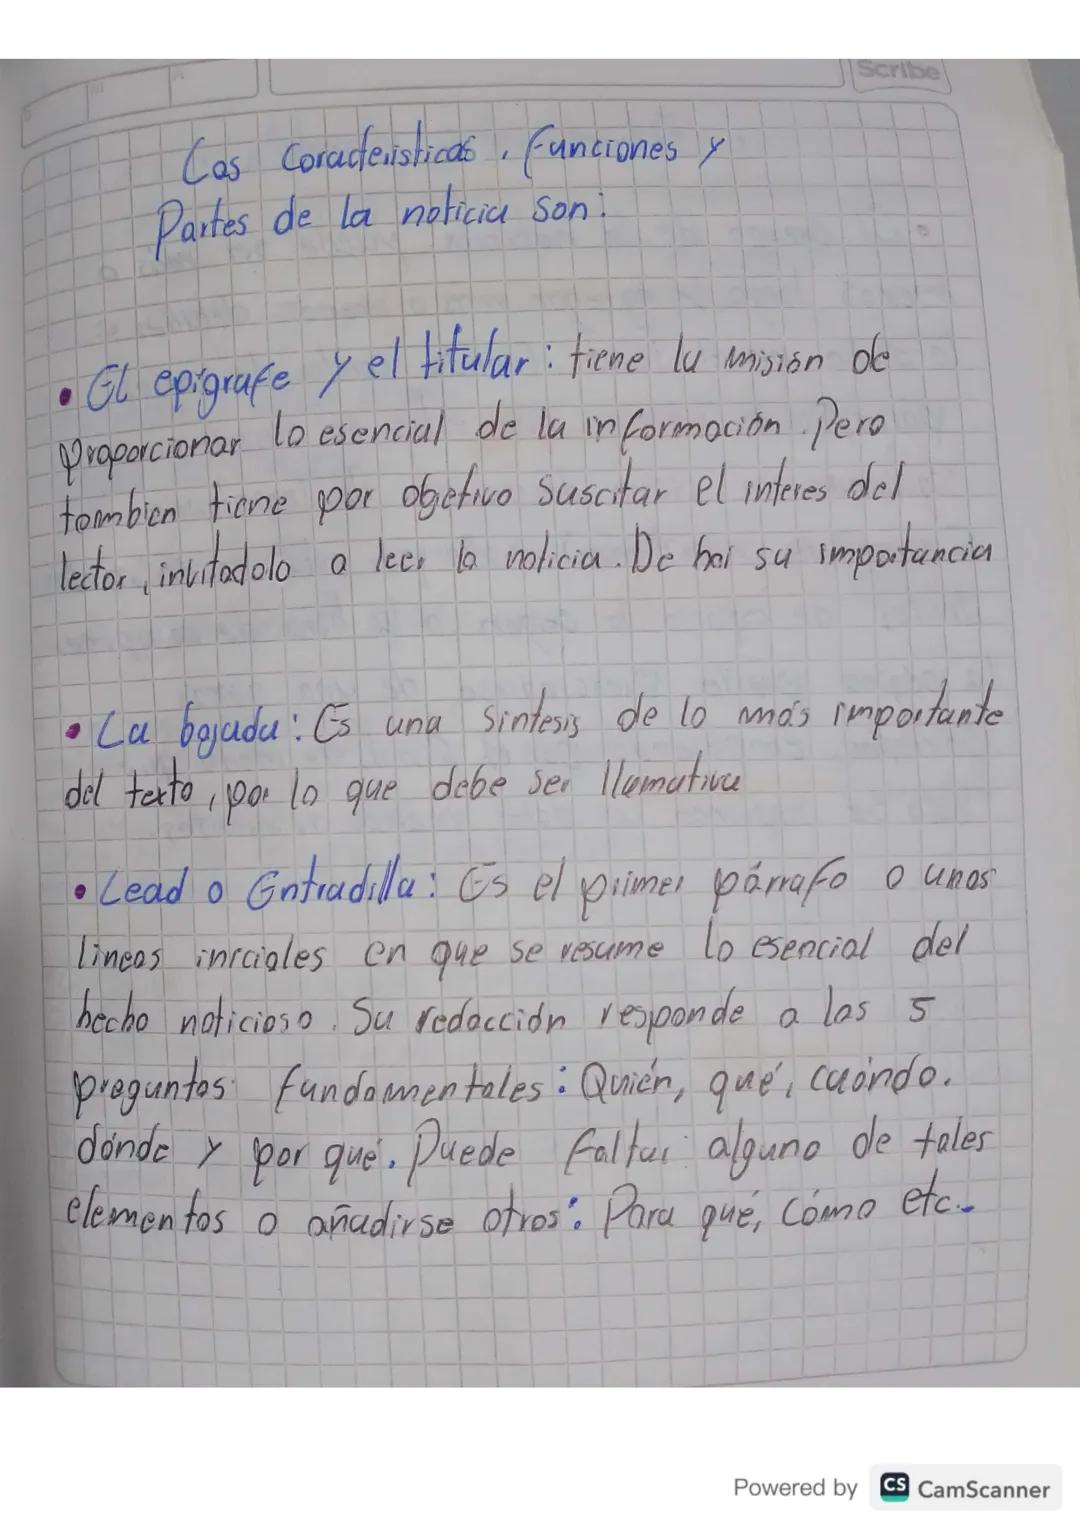 Scribe
Las Coracteristicas, funciones y
Partes de la noticia son:
• El epigrafe y el titular: tiene la misión de
proporcionar lo esencial de la información. Pero
tombien tiene por objetivo suscitar el interes del
lector, invitadolo a leer la noticia. De hai su importancia
• La bajada: Es una sintesis de lo más importante
del texto, por lo que debe ser llamativa
• Lead o Entradilla: Es el primer párrafo o unas
lineas iniciales en que se resume lo esencial del
hecho noticioso. Su redacción responde a las 5
preguntas fundamentales: Quién, qué, cuándo.
dónde y por qué. Puede faltar alguno de tales
elementos o añadirse otros: Para qué, cómo etc..
Powered by CS CamScanner